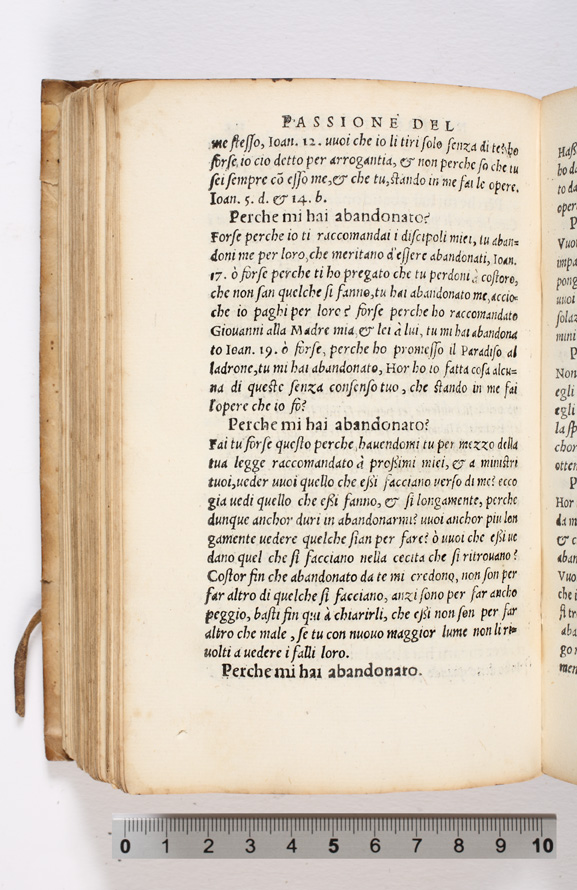 PASSIONE DEL
me stesso, Ioan. 12. uuoi che io li tiri solo senza di te? ho
forse, io cio detto per arrogantia, & non perche so che tu
sei sempre cõ esso me, & che tu, stando in me fai le opere,
Ioan. 5. d. & 14. b.
Perche mi hai abandonato?
Forse perche io ti raccomandai i discipoli miei, tu aban=
doni me per loro, che meritano d'essere abandonati, Ioan.
17. ò forse perche ti ho pregato che tu perdoni à costoro,
che non san quelche si fanno, tu hai abandonato me, accio=
che io paghi per loro? forse perche ho raccomandato
Giouanni alla Madre mia, & lei à lui, tu mi hai abandona
to Ioan. 19. ò forse, perche ho promesso il Paradiso al
ladrone, tu mi hai abandonato, Hor ho io fatta cosa alcu=
na di queste senza consenso tuo, che stando in me fai
l'opere che io fò?
Perche mi hai abandonato?
Fai tu forse questo perche, hauendomi tu per mezzo della
tua legge raccomandato à prossimi miei, & a ministri
tuoi, ueder uuoi quello che essi facciano uerso di me? ecco
gia uedi quello che essi fanno, & si longamente, perche
dunque anchor duri in abandonarmi? uuoi anchor piu lon
gamente uedere quelche sian per fare? ò uuoi che essi ue
dano quel che si facciano nella cecita che si ritrouano?
Costor fin che abandonato da te mi credono, non son per
far altro di quelche si facciano, anzi sono per far ancho
peggio, basti fin qui à chiarirli, che essi non son per far
altro che male, se tu con nuouo maggior lume non li ri=
uolti a uedere i falli loro.
Perche mi hai abandonato.
0 1 2 3 4 5 6 7 8 9 10